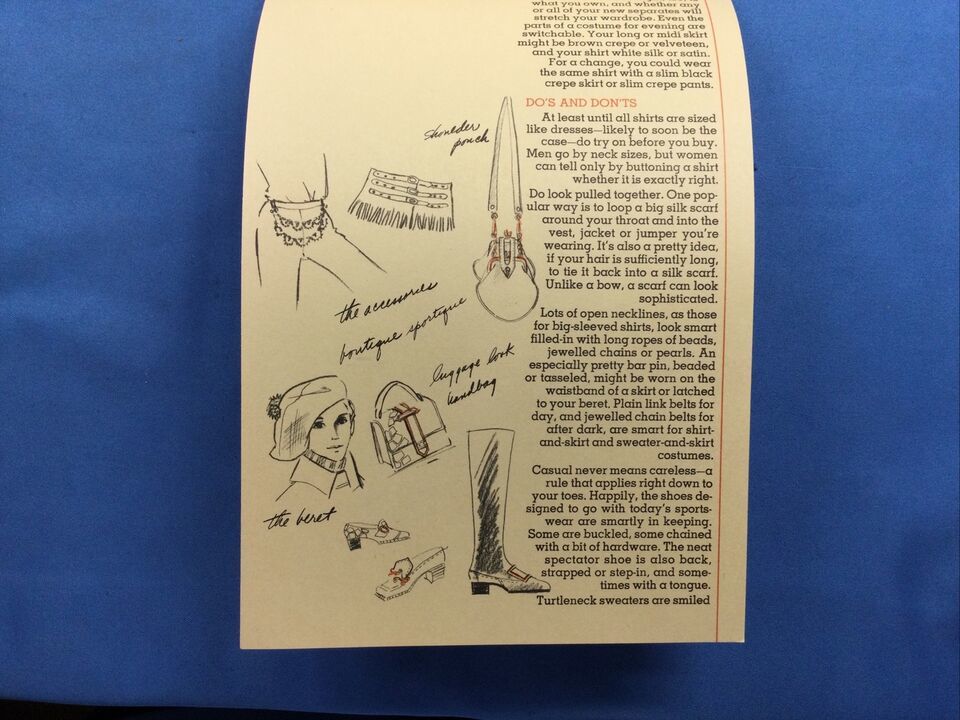 what you own, and whether any
or all of your new separates will
stretch your wardrobe. Even the
parts of a costume for evening are
switchable. Your long or midi skirt
might be brown crepe or velveteen,
and your shirt white silk or satin.
For a change, you could wear
the same shirt with a slim black
crepe skirt or slim crepe pants.
DO'S AND DON'TS
At least until all shirts are sized
like dresses—likely to soon be the
case—do try on before you buy.
Men go by neck sizes, but women
can tell only by buttoning a shirt
whether it is exactly right.
Do look pulled together. One pop-
ular way is to loop a big silk scarf
around your throat and into the
vest, jacket or jumper you're
wearing. It's also a pretty idea,
if your hair is sufficiently long,
to tie it back into a silk scarf.
Unlike a bow, a scarf can look
sophisticated.
Lots of open necklines, as those
for big-sleeved shirts, look smart
filled-in with long ropes of beads,
jewelled chains or pearls. An
especially pretty bar pin, beaded
or tasseled, might be worn on the
waistband of a skirt or latched
to your beret. Plain link belts for
day, and jewelled chain belts for
after dark, are smart for shirt-
and-skirt and sweater-and-skirt
costumes.
Casual never means careless—a
rule that applies right down to
your toes. Happily, the shoes de-
signed to go with today's sports-
wear are smartly in keeping.
Some are buckled, some chained
with a bit of hardware. The neat
spectator shoe is also back,
strapped or step-in, and some-
times with a tongue.
Turtleneck sweaters are smiled
shoulder
pouch
the accessories
boutique sportique
luggage look
handbag
the beret